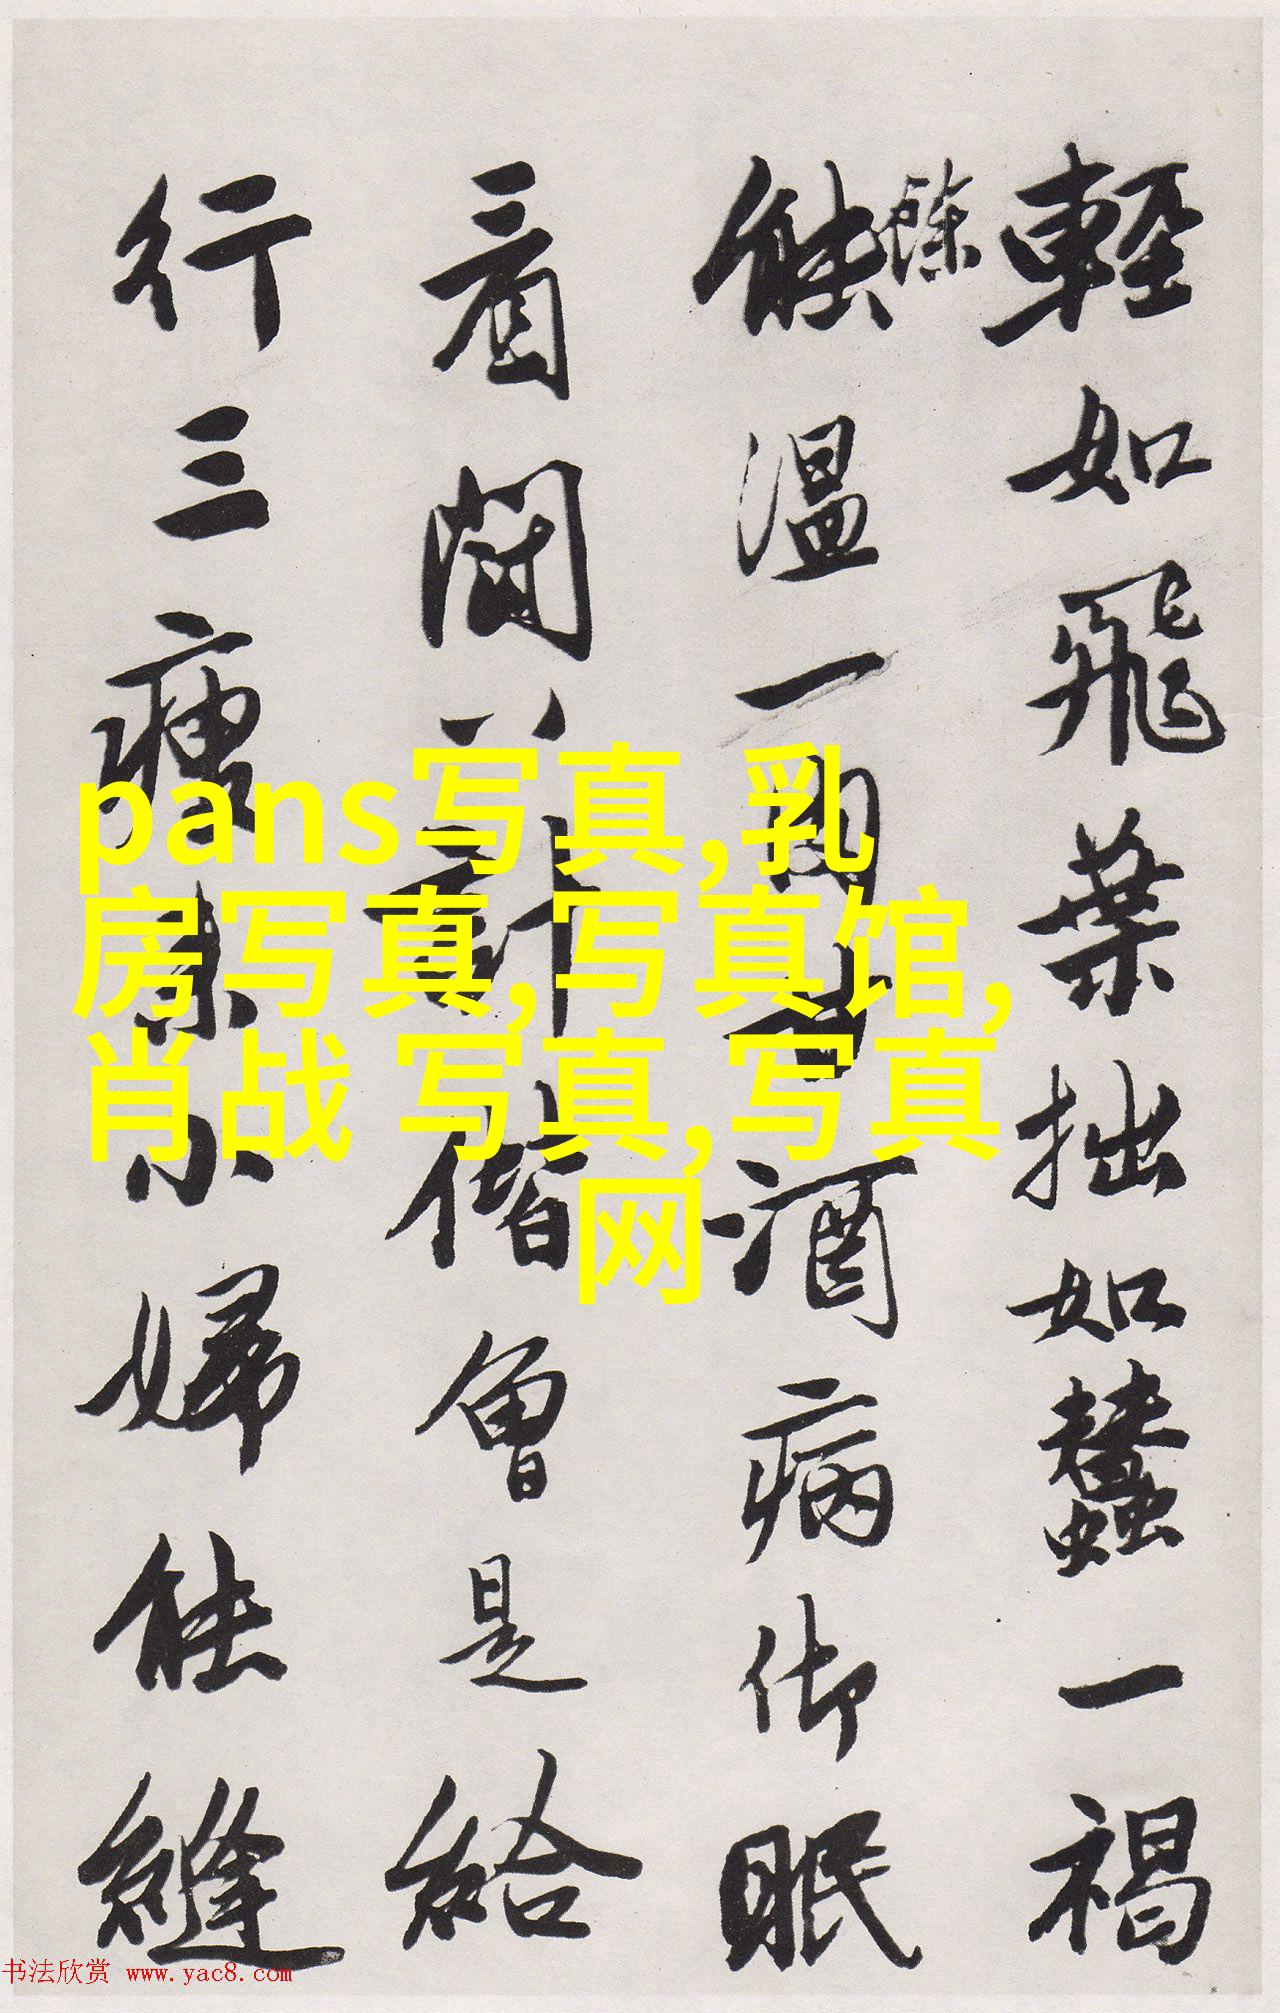 輕如飛葉拙如蠶一褐
餘
能溫一酒病御眠
看計偕曾是給
行三小婦能縫
pans写真,乳
房写真,写真馆,
肖战 写真,写真
网
书法欣赏 www.yac8.com